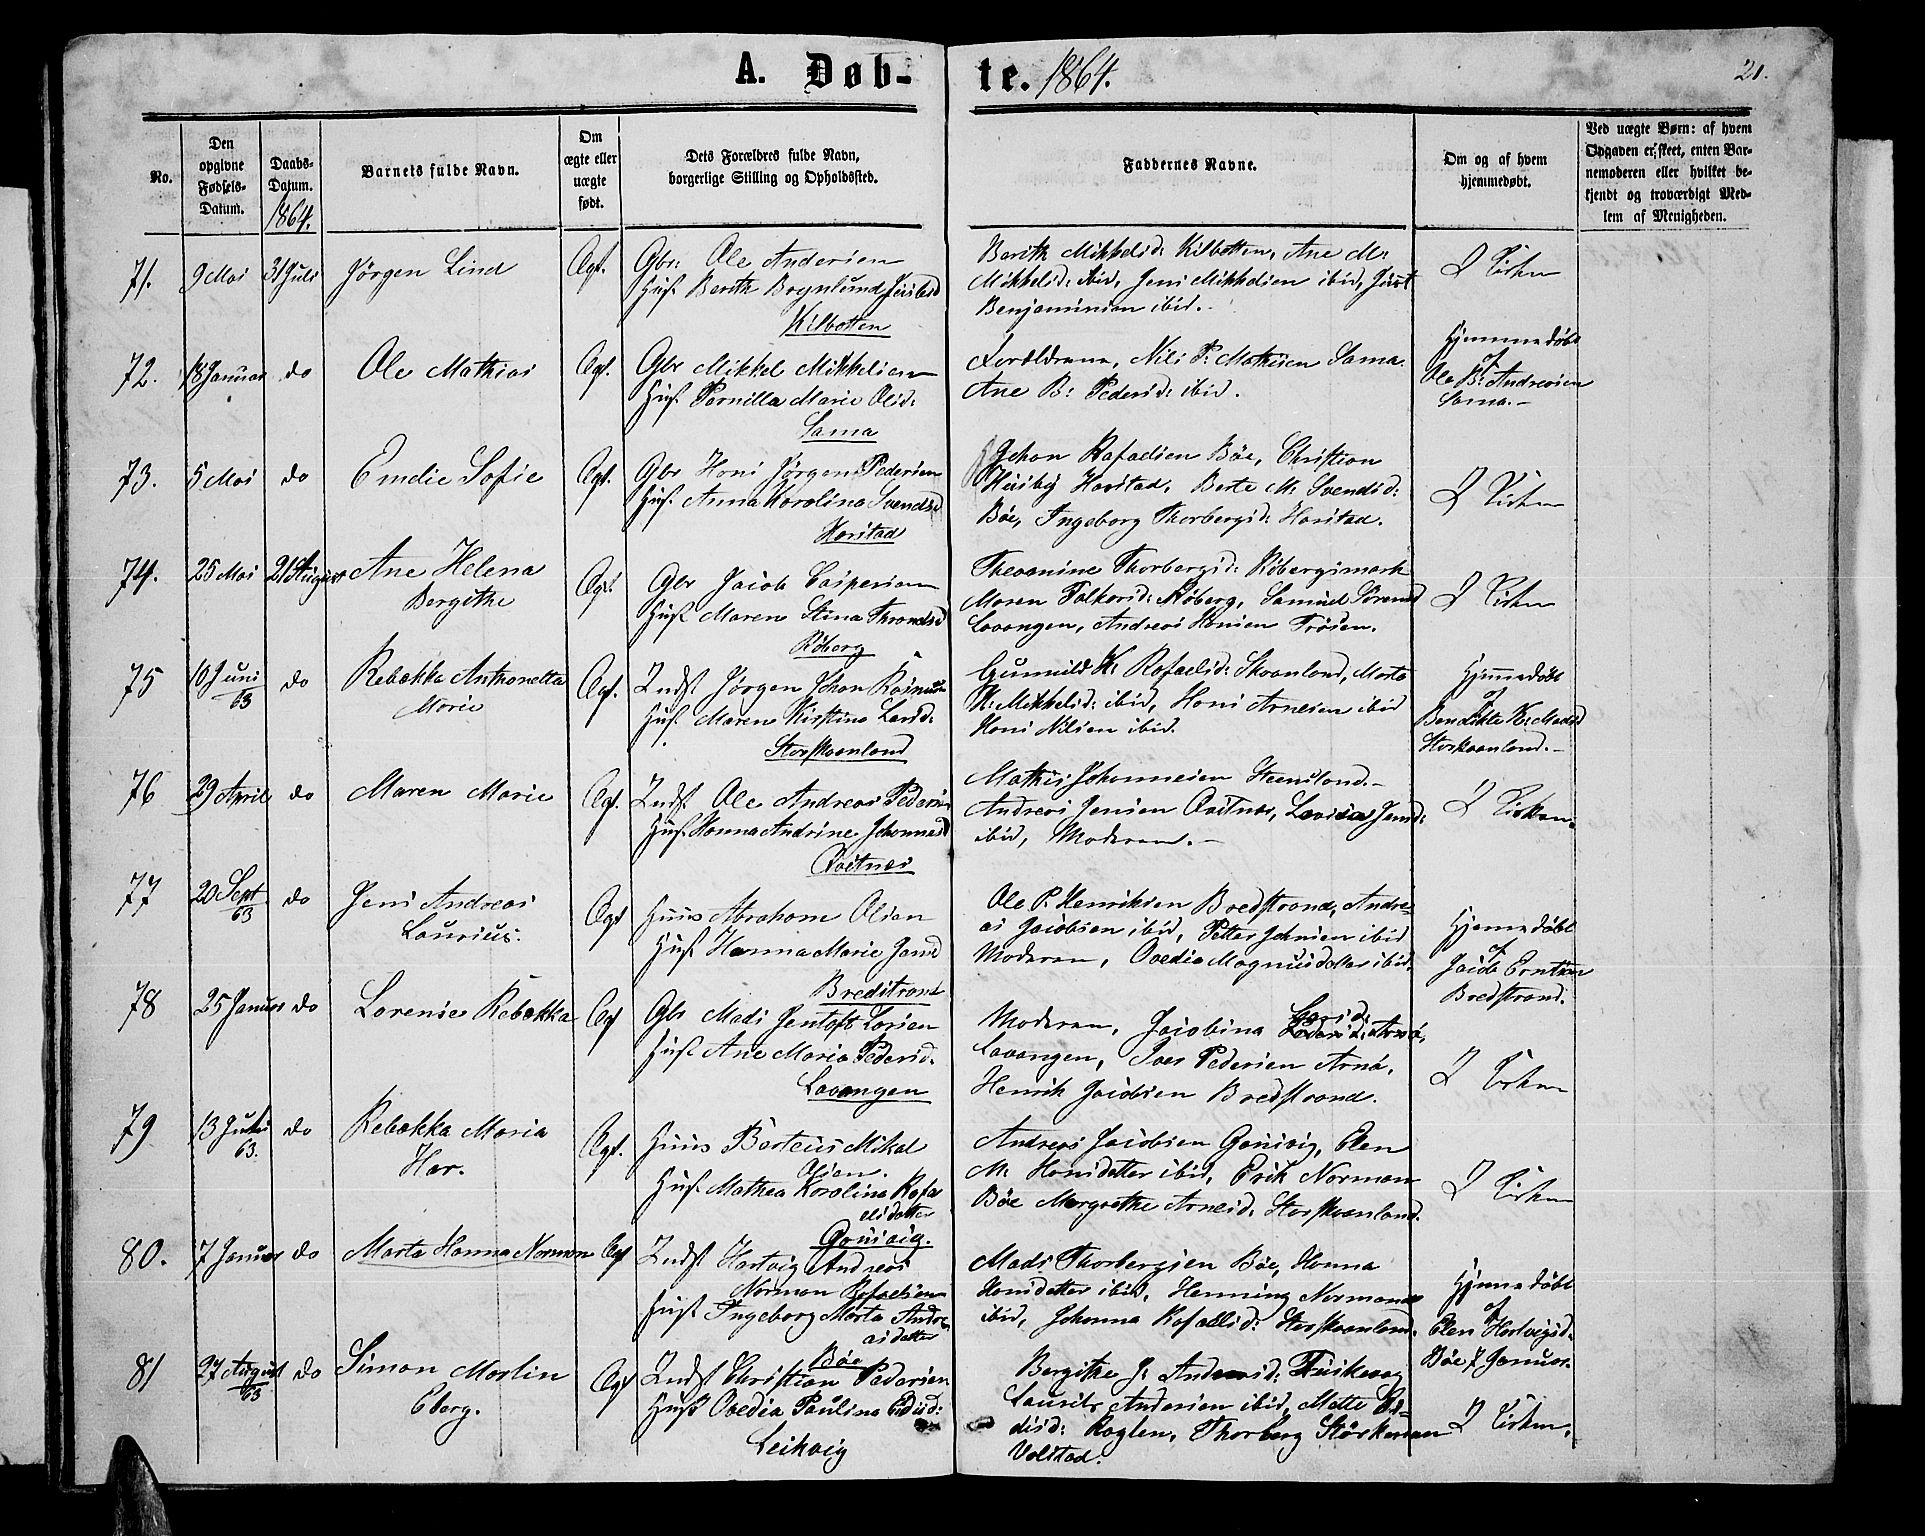 A. Døb-
te. 1864.
21.
No.
Den opgivne Fødsels-Datum.
Daabs-Datum. 1864.
Barnets fulde Navn.
Om ægte eller uægte født.
Dets Forældres fulde Navn, borgerlige Stilling og Opholdssted.
Faddernes Navne.
Om og af hvem hjemmedøbt.
Ved uægte Børn: af hvem Opgaven er skeet, enten Barnemoderen eller hvilket bekjendt og troværdigt Medlem af Menigheden.
71. 9 Mai 31 Juli Jørgen Lind Ægt. Gbr: Ole Andersen
Hus. Berith Brynlund
Kilbotten
Berith Mikkelsd: Kilbotten, Ane M:
Mikkelsd: ibid, Jens Mikkelsen ibid, Just
Benjaminsen ibid.
I Kirken
72. 18 Januar do Ole Mathias Ægt. Gbr Mikkel Mikkelsen
Hus. Pernilla Marie Olsd:
Sama
Forældrene, Nils P: Mathisen Sama.
Ane B: Pedersd: ibid.
Hjemmedøbt
af
Ole B: Andreasen
Sama.-
73. 5 Mai do Emelie Sofie Ægt. Gbr Hans Jørgen Pedersen
Hus. Anna Karolina Svendsd
Harstad
Johan Rafaelsen Bøe, Christian
Huseby Harstad, Berte M: Svendsd:
Bøe, Ingeborg Thorbergsd: Harstad.
I Kirken
74. 25 Mai 21 August Ane Helena
Bergithe
Ægt. Gbr Jacob Caspersen
Hus. Maren Stina Throndsd
Røberg
Thevanine Thorbergsd: Røbergsmark
Maren Falkorsd: Røberg, Samuel Sørens
Lavangen, Andreas Hansen Trøsen.
I Kirken
75 10 Juni 63 do Rebekka Anthonetta
Marie
Ægt. Indst Jørgen Johan Rasmus
Hus. Maren Kirstina Larsd:
Storskaanland
Gunnild K: Rafaelsd: Skaanland, Marte
K: Mikkelsd: ibid, Hans Arnesen ibid
Hans Nilsen ibid.
Hjemmedøbt
af
Bendikte K: Madsd
Storskaanland.-
76 29 April do Maren Marie Ægt. Indst Ole Andreas Peders
Hus. Hanna Andrine Johannesd
Qvitnes
Mathis Johannesen Steensland.-
Andreas Jensen Qvitnes, Lovisa Jensd:
ibid, Moderen.-
I Kirken.
77 20 Sept 63 do Jens Andreas
Laurius.
Ægt Huus Abraham Olsen
Hus. Hanna Marie Jensd
Bredstrand
Ole P. Henriksen Bredstrand, Andre-
as Jacobsen ibid, Petter Johnsen ibid
Moderen, Ovedia Magnusdatter ibid.
Hjemmedøbt
af
Jacob Erntsen
Bredstrand.
78 25 Januar do Lorense Rebekka Ægt Gbr Mads Jentoft Larsen
Hus. Ane Maria Pedersd.
Lavangen
Moderen, Jacobina Larsd: Pedersd: Arnø,
Lavangen, Iver Pedersen Arnø,
Henrik Jacobsen Bredstrand.
I Kirken
79 13 Juli 63. do Rebekka Maria
Har.
Ægt. Huus Berteus Mikal
Olsen.
Hus. Mathea Karolina Rafa
elsdatter
Gausvig.
Andreas Jacobsen Gausvig, Elen
M: Hansdatter ibid, Erik Norman
Bøe Margrethe Arnesd: Storskaanland.
I Kirken
80. 7 Januar do Marta Hanna Norman Ægt Indst Hartvig Andreas
Norman Rafaelsen
Hus. Ingeborg Marta Andre
asdatter
Bøe
Mads Thorbergsen Bøe, Hanna
Hansdatter ibid, Henning Normand
ibid, Johanna Rafaelsd: Storskaanland.
Hjemmedøbt
af
Elen Hartvigsd.
Bøe 7 Januar.
81 27 August 63 do Simon Martin
Eberg.
Ægt Indst Christian Pedersen
Hus. Ovedia Paulina Edisd:
Leikvig
Bergithe J: Andersd: Fuskevaag
Laurits Andersen ibid, Mette E-
disd: Roglen, Thorberg Størkersen
Volstad.
I Kirken.